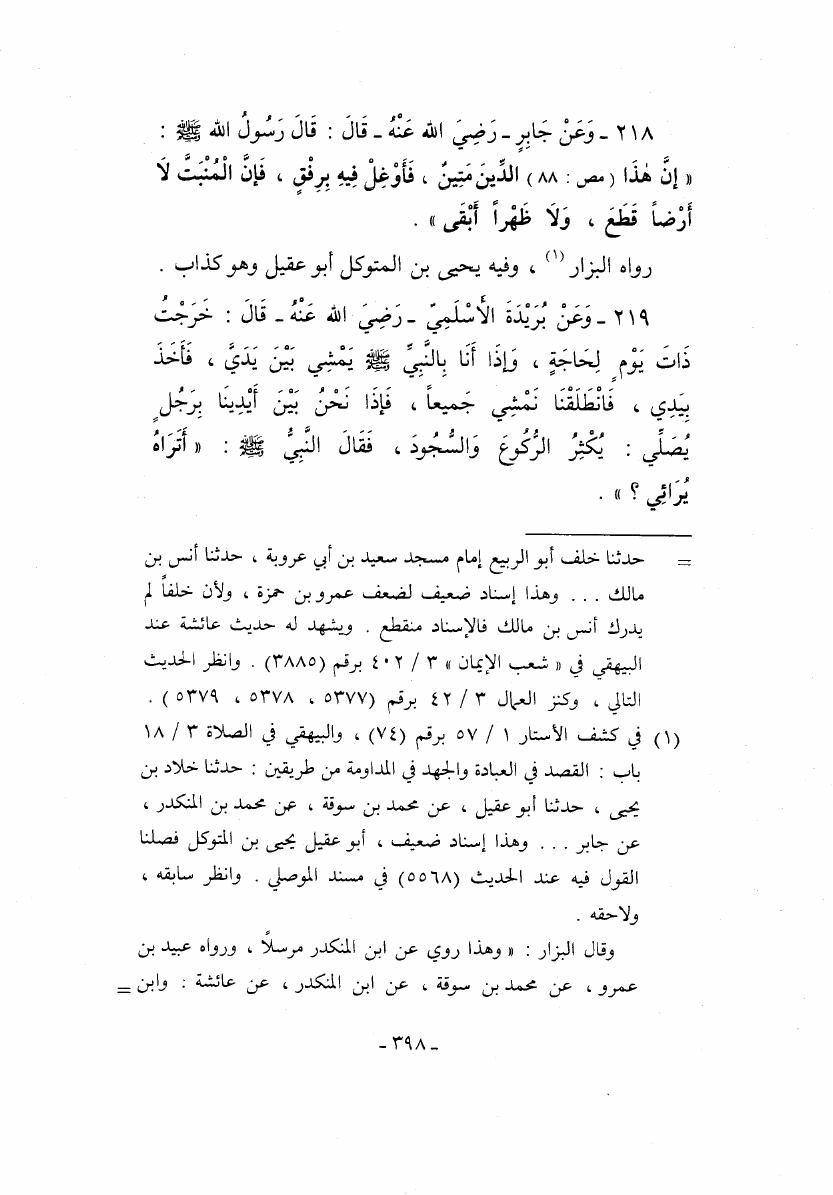 ٢١٨ ـ وَعَنْ جَابِرٍ ـ رَضِيَ الله عَنْهُ ـ قَالَ : قَالَ رَسُولُ الله ﷺ :
« إِنَّ هٰذَا (مص : ٨٨) الدِّينَ مَتِينٌ ، فَأَوْغِلْ فِيهِ بِرِفْقٍ ، فَإِنَّ الْمُنْبَتَّ لَا
أَرْضاً قَطَعَ ، وَلَا ظَهْراً أَبْقَى » .
رواه البزار (١) ، وفيه يحيى بن المتوكل أبو عقيل وهو كذاب .
٢١٩ ـ وَعَنْ بُرَيْدَةَ الأَسْلَمِيّ ـ رَضِيَ الله عَنْهُ ـ قَالَ : خَرَجْتُ
ذَاتَ يَوْمٍ لِحَاجَةٍ ، وَإِذَا أَنَا بِالنَّبِيِّ ﷺ يَمْشِي بَيْنَ يَدَيَّ ، فَأَخَذَ
بِيَدِي ، فَانْطَلَقْنَا نَمْشِي جَمِيعاً ، فَإِذَا نَحْنُ بَيْنَ أَيْدِينَا بِرَجُلٍ
يُصَلِّي : يُكْثِرُ الرُّكُوعَ وَالسُّجُودَ ، فَقَالَ النَّبِيُّ ﷺ : « أَتَرَاهُ
يُرَائِي ؟ » .
= حدثنا خلف أبو الربيع إمام مسجد سعيد بن أبي عروبة ، حدثنا أنس بن
مالك ... وهذا إسناد ضعيف لضعف عمرو بن حمزة ، ولأن خلفاً لم
يدرك أنس بن مالك فالإسناد منقطع . ويشهد له حديث عائشة عند
البيهقي في « شعب الإيمان » ٣ / ٤٠٢ برقم (٣٨٨٥) . وانظر الحديث
التالي ، وكنز العمال ٣ / ٤٢ برقم (٥٣٧٧ ، ٥٣٧٨ ، ٥٣٧٩) .
(١) في كشف الأستار ١ / ٥٧ برقم (٧٤) ، والبيهقي في الصلاة ٣ / ١٨
باب : القصد في العبادة والجهد في المداومة من طريقين : حدثنا خلاد بن
يحيى ، حدثنا أبو عقيل ، عن محمد بن سوقة ، عن محمد بن المنكدر ،
عن جابر ... وهذا إسناد ضعيف ، أبو عقيل يحيى بن المتوكل فصلنا
القول فيه عند الحديث (٥٥٦٨) في مسند الموصلي . وانظر سابقه ،
ولاحقه .
وقال البزار : « وهذا روي عن ابن المنكدر مرسلاً ، ورواه عبيد بن
عمرو ، عن محمد بن سوقة ، عن ابن المنكدر ، عن عائشة : وابن =
ـ ٣٩٨ ـ